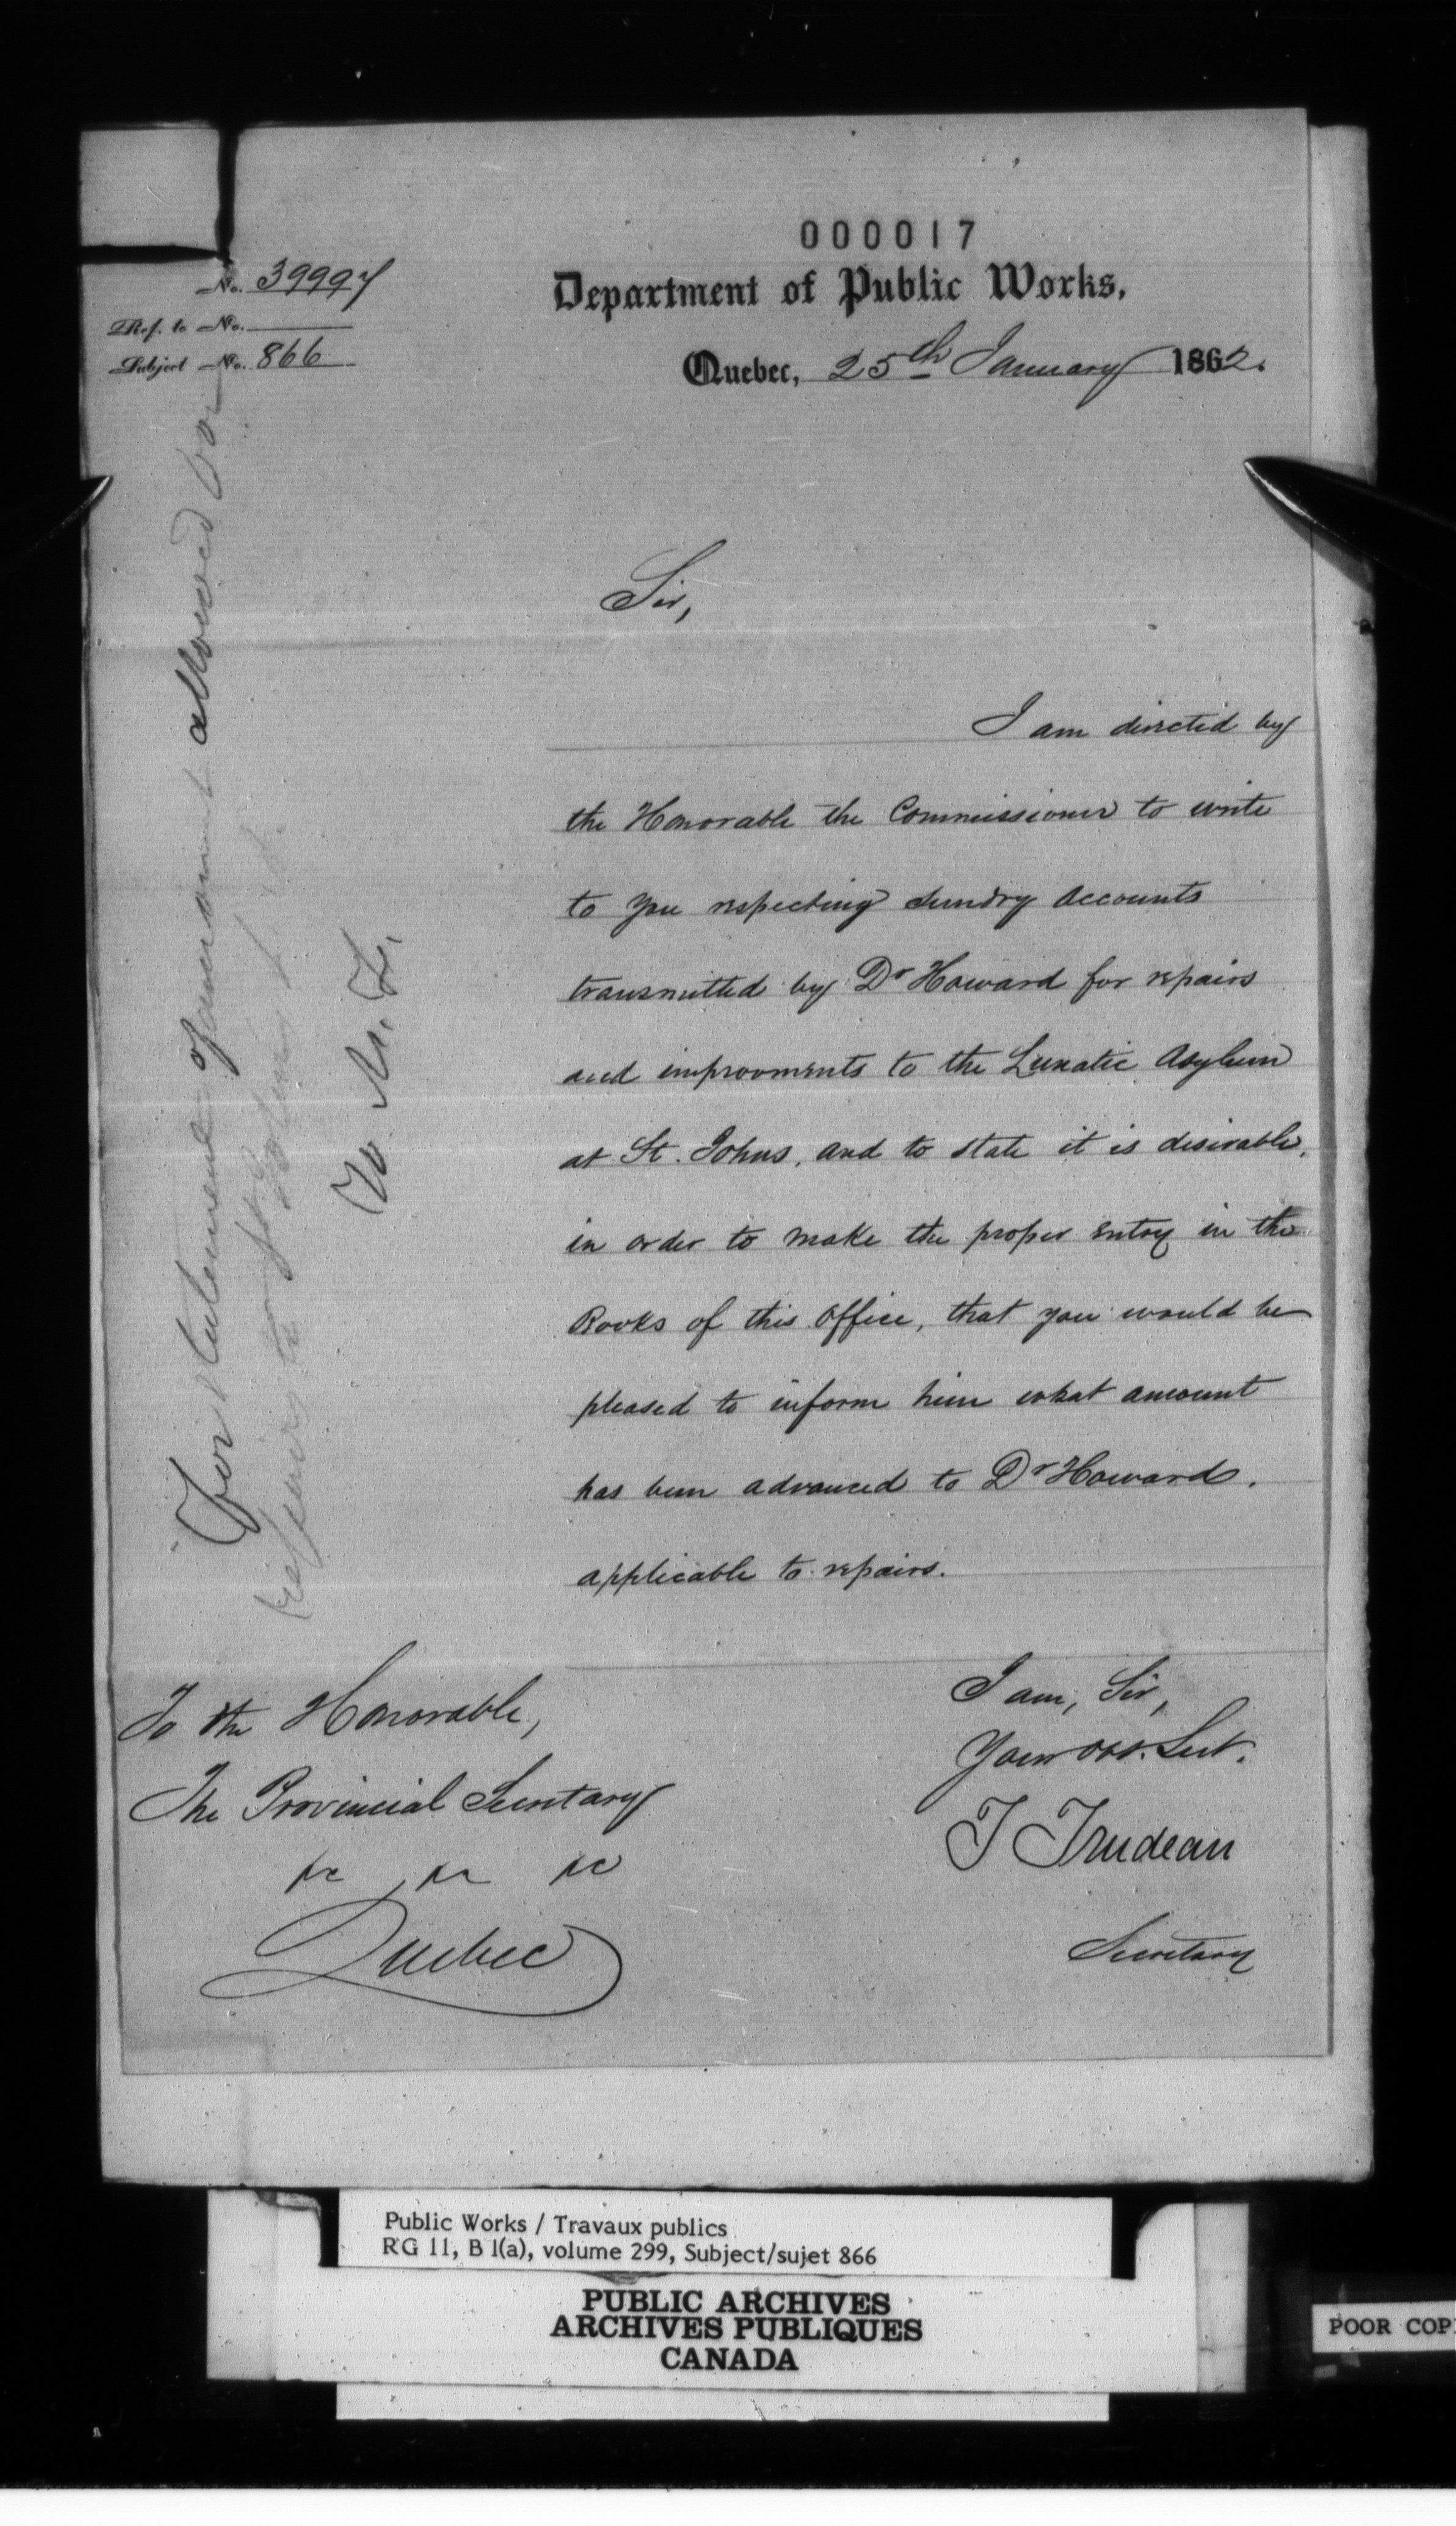 000017
No. 39997
Ref. to No.
Subject No. 866
Department of Public Works,
Quebec, 25th January 1862.
Sir,
I am directed by
the Honorable the Commissioner to write
to you respecting sundry Accounts
transmitted by Dr Howard for repairs
and improvments to the Lunatic Asylum
at St. Johns, and to state it is desirable,
in order to make the proper entry in the
Books of this Office, that you would be
pleased to inform him what amount
has been advanced to Dr Howard.
applicable to repairs.
I am, Sir,
Your Obt. Sert.
T Trudeau
Secretary
To the Honorable,
The Provincial Secretary
&c &c &c
Quebec
For Statement of amount allowed for
repairs to
Public Works / Travaux publics
RG 11, B 1(a), volume 299, Subject/sujet 866
PUBLIC ARCHIVES
ARCHIVES PUBLIQUES
CANADA
POOR COP